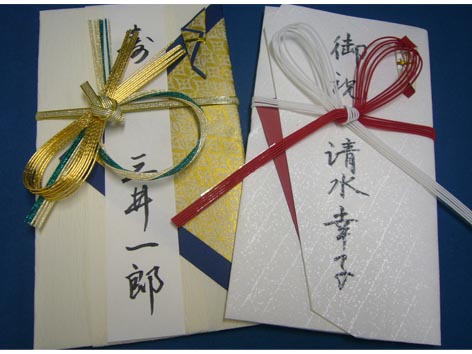 寿
三井一郎
御祝
清水幸子